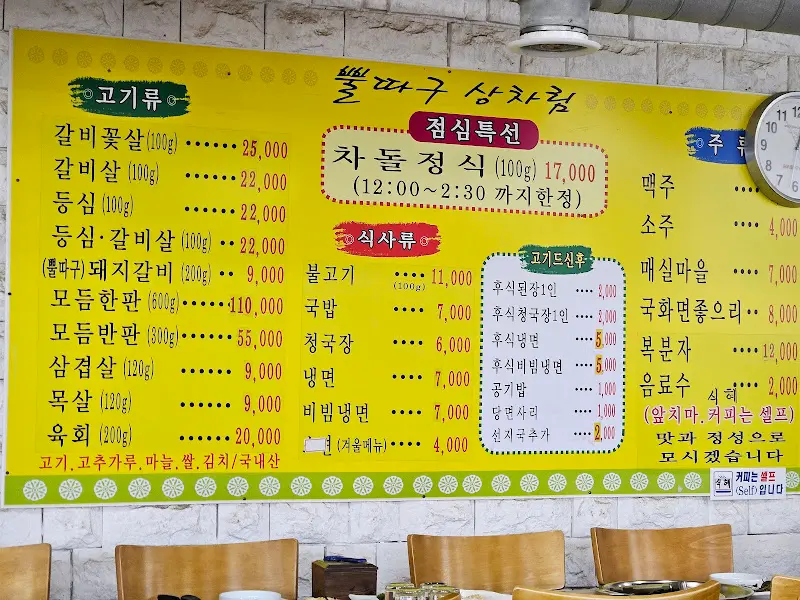 뿔따구 상차림
고기류
갈비꽃살(100g) ······ 25,000
갈비살(100g) ······ 22,000
등심(100g) ······ 22,000
등심·갈비살(100g) ·· 22,000
(뿔따구)돼지갈비(200g) ·· 9,000
모듬한판(600g) ·····110,000
모듬반판(300g) ····· 55,000
삼겹살(120g) ······ 9,000
목살(120g) ······· 9,000
육회(200g) ······· 20,000
고기.고추가루.마늘.쌀.김치/국내산
점심특선
차돌정식(100g) 17,000
(12:00~2:30 까지한정)
식사류
불고기 ···· 11,000
(100g)
국밥 ···· 7,000
청국장 ···· 6,000
냉면 ···· 7,000
비빔냉면 ···· 7,000
면 (겨울메뉴) ···· 4,000
고기드신후
후식된장1인 ···· 2,000
후식청국장1인 ···· 2,000
후식냉면 ···· 5,000
후식비빔냉면 ···· 5,000
공기밥 ···· 1,000
당면사리 ···· 1,000
선지국추가 ···· 2,000
주류
맥주 ····
소주 ···· 4,000
매실마을 ···· 7,000
국화면좋으리·· 8,000
복분자 ···· 12,000
음료수 ···· 2,000
식혜
(앞치마.커피는 셀프)
맛과 정성으로
모시겠습니다
식혜
커피는 셀프
(Self)입니다
10 11 12
9
8
7 6